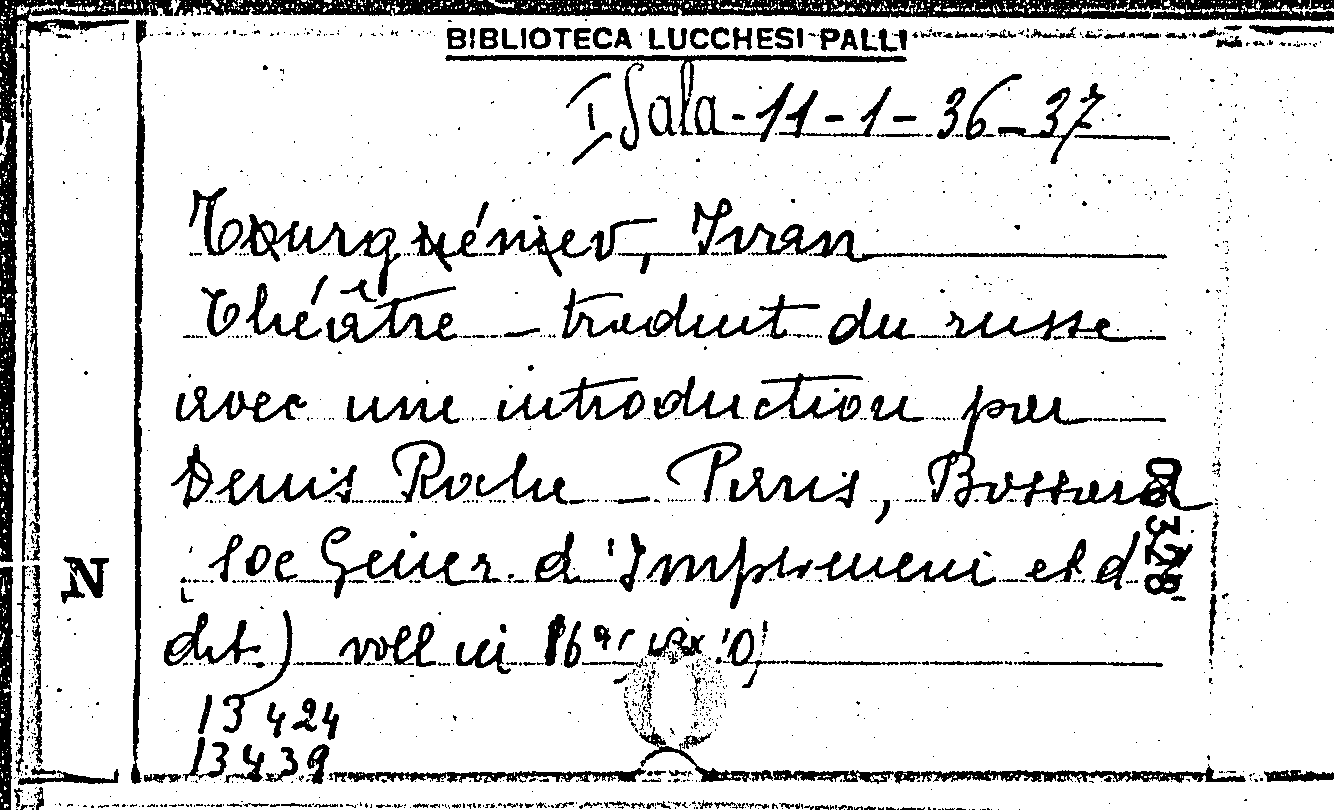 BIBLIOTECA LUCCHESI-PALLI
I Sala - 11 - 1 - 36 - 37
Tourguéniev, Ivan
Théâtre - traduit du russe
avec une introduction par
Denis Roche - Paris, Bossard
Soc Géner. d'Imprimerie et d'
Edit.) voll in 16°
N
13424
13439